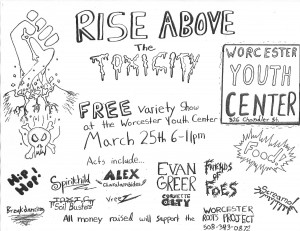 RISE ABOVE
The
TOXICITY
WORCESTER
YOUTH
CENTER
326 Chandler St.
FREE Variety Show
at the Worcester Youth Center
March 25th 6-11pm
Food!
Acts include...
Hip Hop!
Spiritchild
ALEX
EVAN
GREER
FRIENDS
OF
FOES
Screamo!
Toxic
Soil Busters
Vreez
CITY
Breakdancing
All money raised will support the
WORCESTER
ROOTS PROJECT
508-343-0872